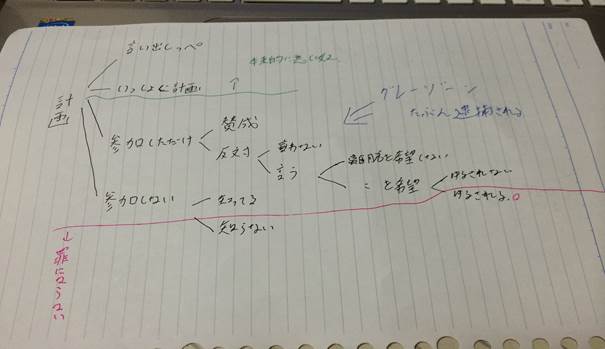 計画
言い出しっぺ
いっしょに計画
↑
参加しただけ
賛成
反対
言わない
言う
離脱を希望しない
〃 を希望
ゆるされない
ゆるされる。
参加しない
知ってる
知らない
グレーゾーン
たぶん逮捕される
↓罪にならない